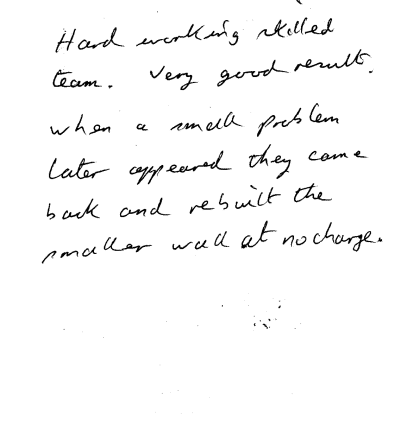 Hard working skilled
team. Very good results.
When a small problem
later appeared they came
back and rebuilt the
smaller wall at no charge.